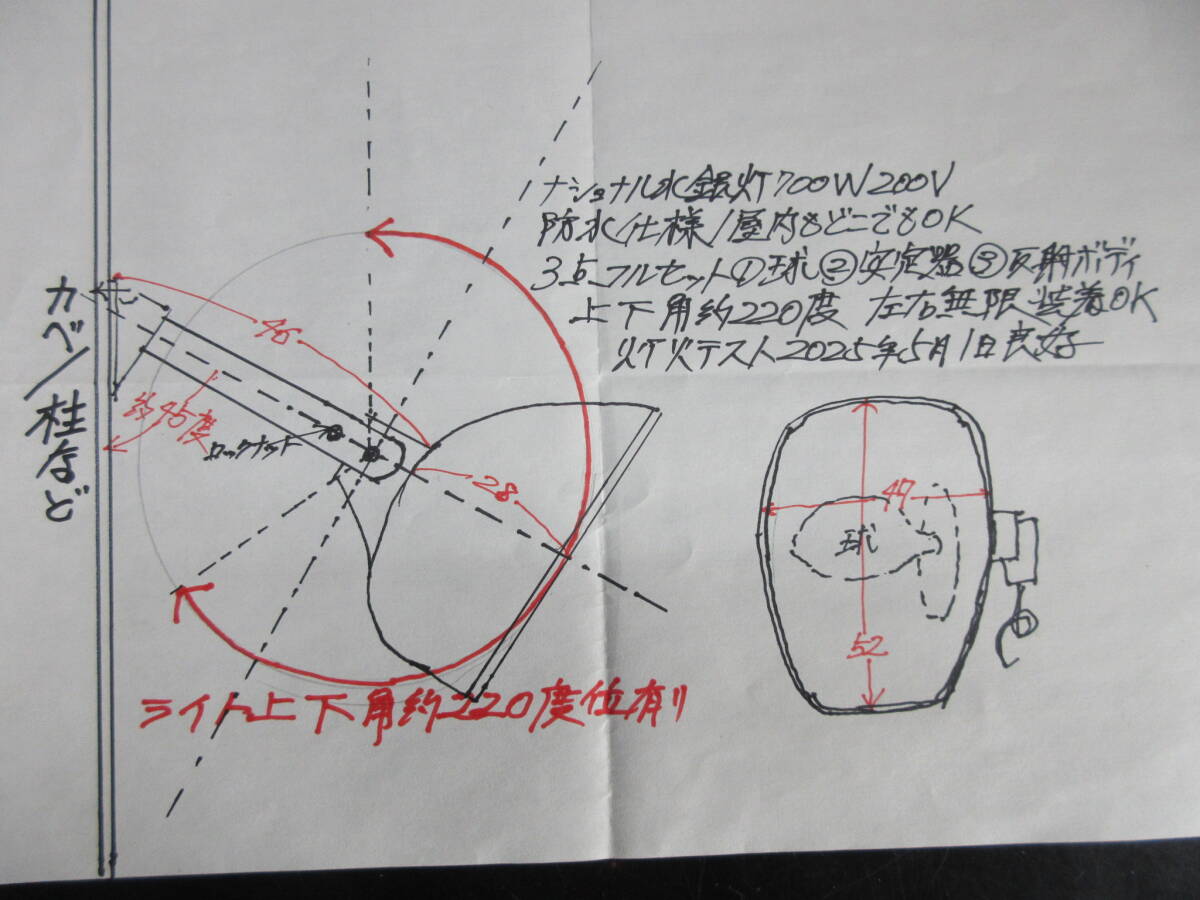 ナショナル水銀灯700W200V
防水仕様/屋内もどこでもOK
3点フルセットの球②安定器③反射ボディ
上下角約220度 左右無限装着OK
灯火テスト2025年5月1日良好
カベ/柱など
約45度
ロックナット
28
47
球
52
ライト上下角約220度位有り